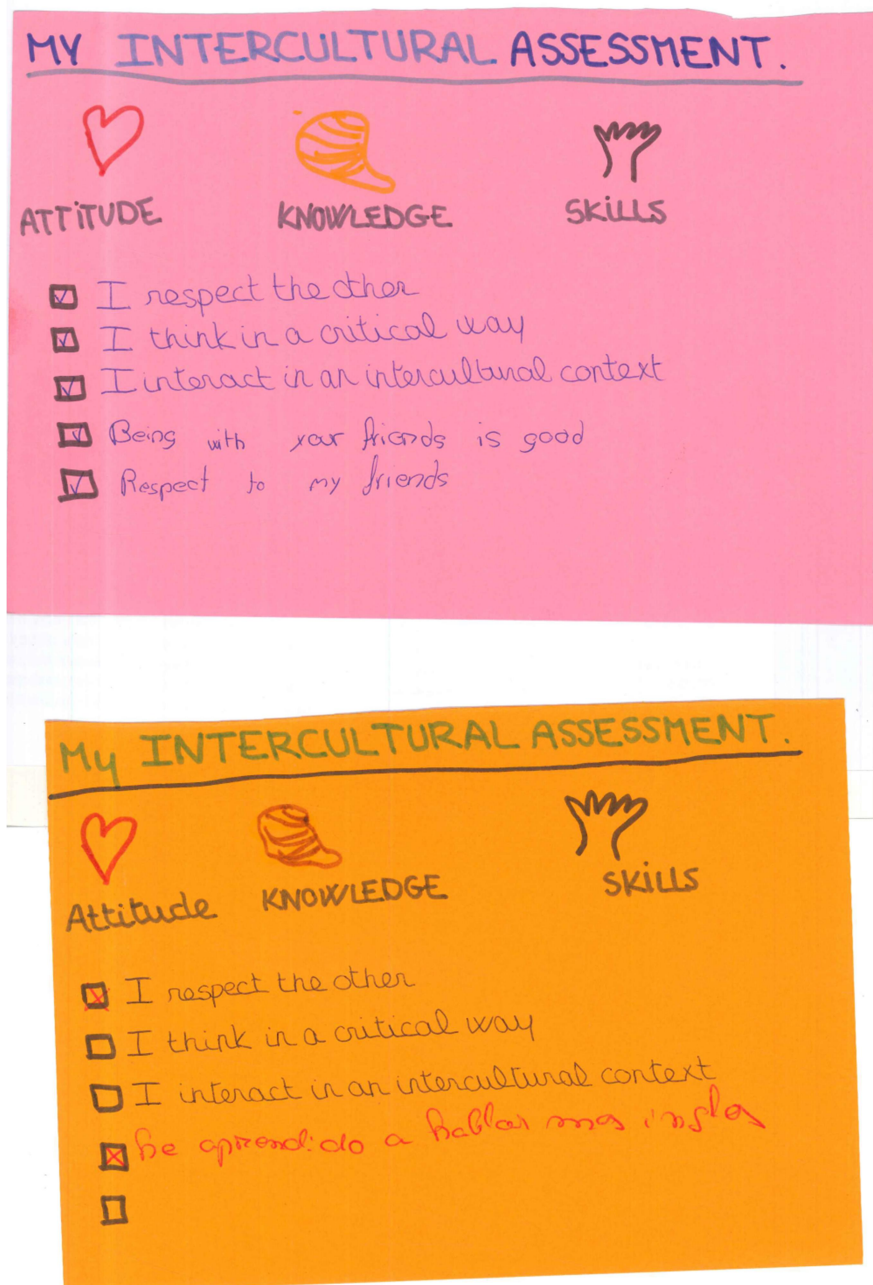 MY INTERCULTURAL ASSESSMENT.
ATTITUDE KNOWLEDGE SKILLS
I respect the other
I think in a critical way
I interact in an intercultural context
Being with your friends is good
Respect to my friends
My INTERCULTURAL ASSESSMENT.
Attitude KNOWLEDGE SKILLS
I respect the other
I think in a critical way
I interact in an intercultural context
he aprendido a hablar mas ingles